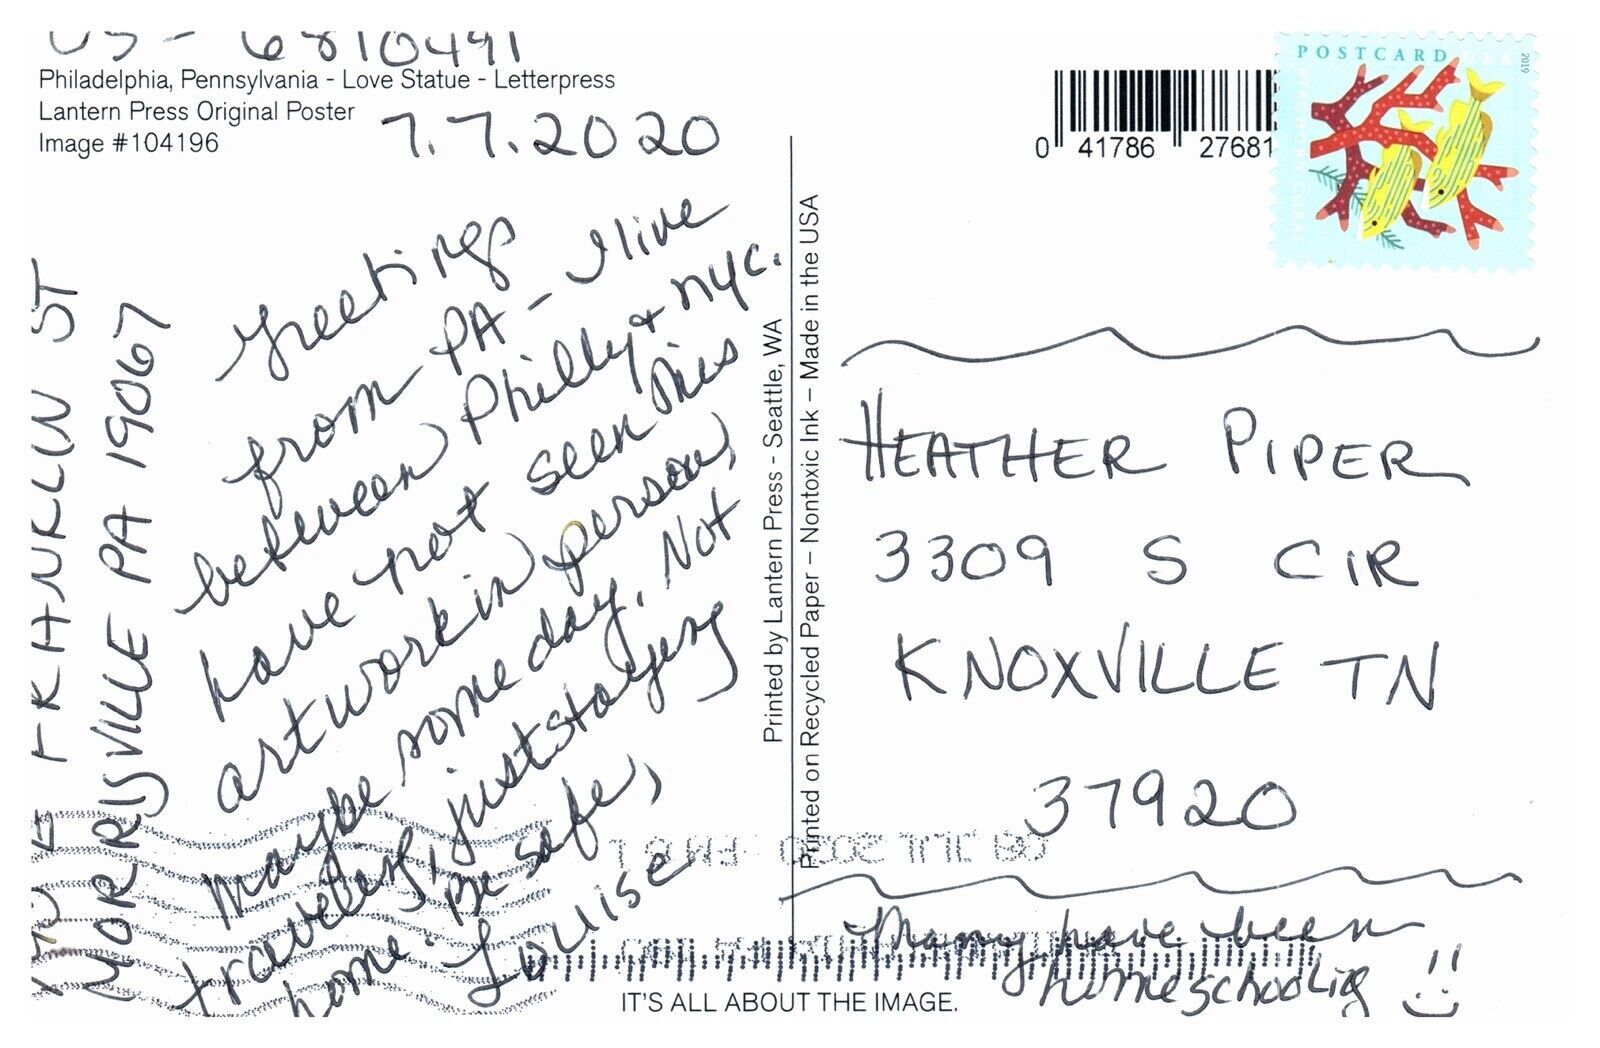 US - 6810491
Philadelphia, Pennsylvania - Love Statue - Letterpress
Lantern Press Original Poster
Image #104196
7.7.2020
Greetings
from PA - I live
between Philly + NYC.
have not seen this
artwork in person,
Maybe some day. Not
traveling, just staying
home. Be safe,
Louise
E FRANKLIN ST
MORRISVILLE PA 19067
Printed by Lantern Press - Seattle, WA
Printed on Recycled Paper – Nontoxic Ink – Made in the USA
0 41786 27681
POSTCARD USA
2019
STAGHORN CORAL
HEATHER PIPER
3309 S CIR
KNOXVILLE TN
37920
08 JUL 2020 PM 8 L
Many have been
homeschoolig
IT'S ALL ABOUT THE IMAGE.